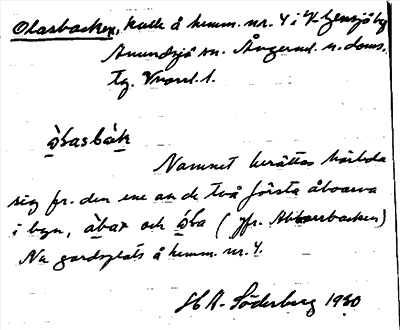 Olasbacken, kulle å hemm. nr. 4 i Y-Gensjö by
Anundsjö sn. Ångerml. n. doms.
tg. Vnorrl. l.
Namnet berättas härleda
sig fr. den ene av de två första åboarna
i byn, och (jfr. Abborrbacken)
Nu gårdsplats å hemm. nr. 4.
H A. Söderberg 1930